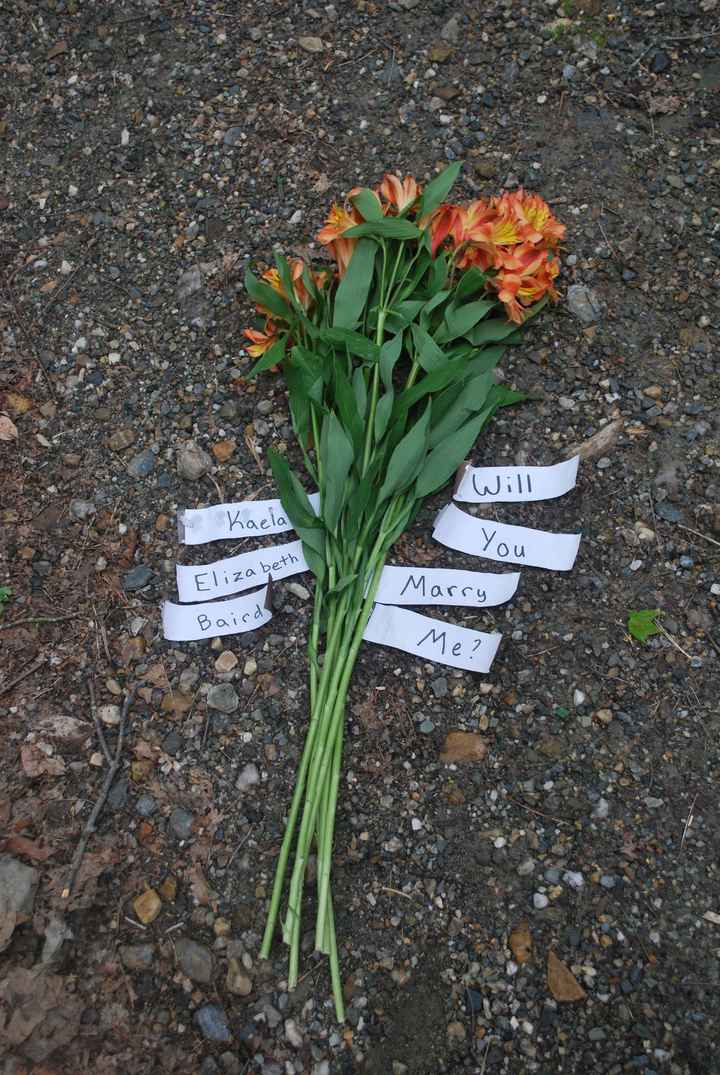 Kaela
Elizabeth
Baird
Will
You
Marry
Me?